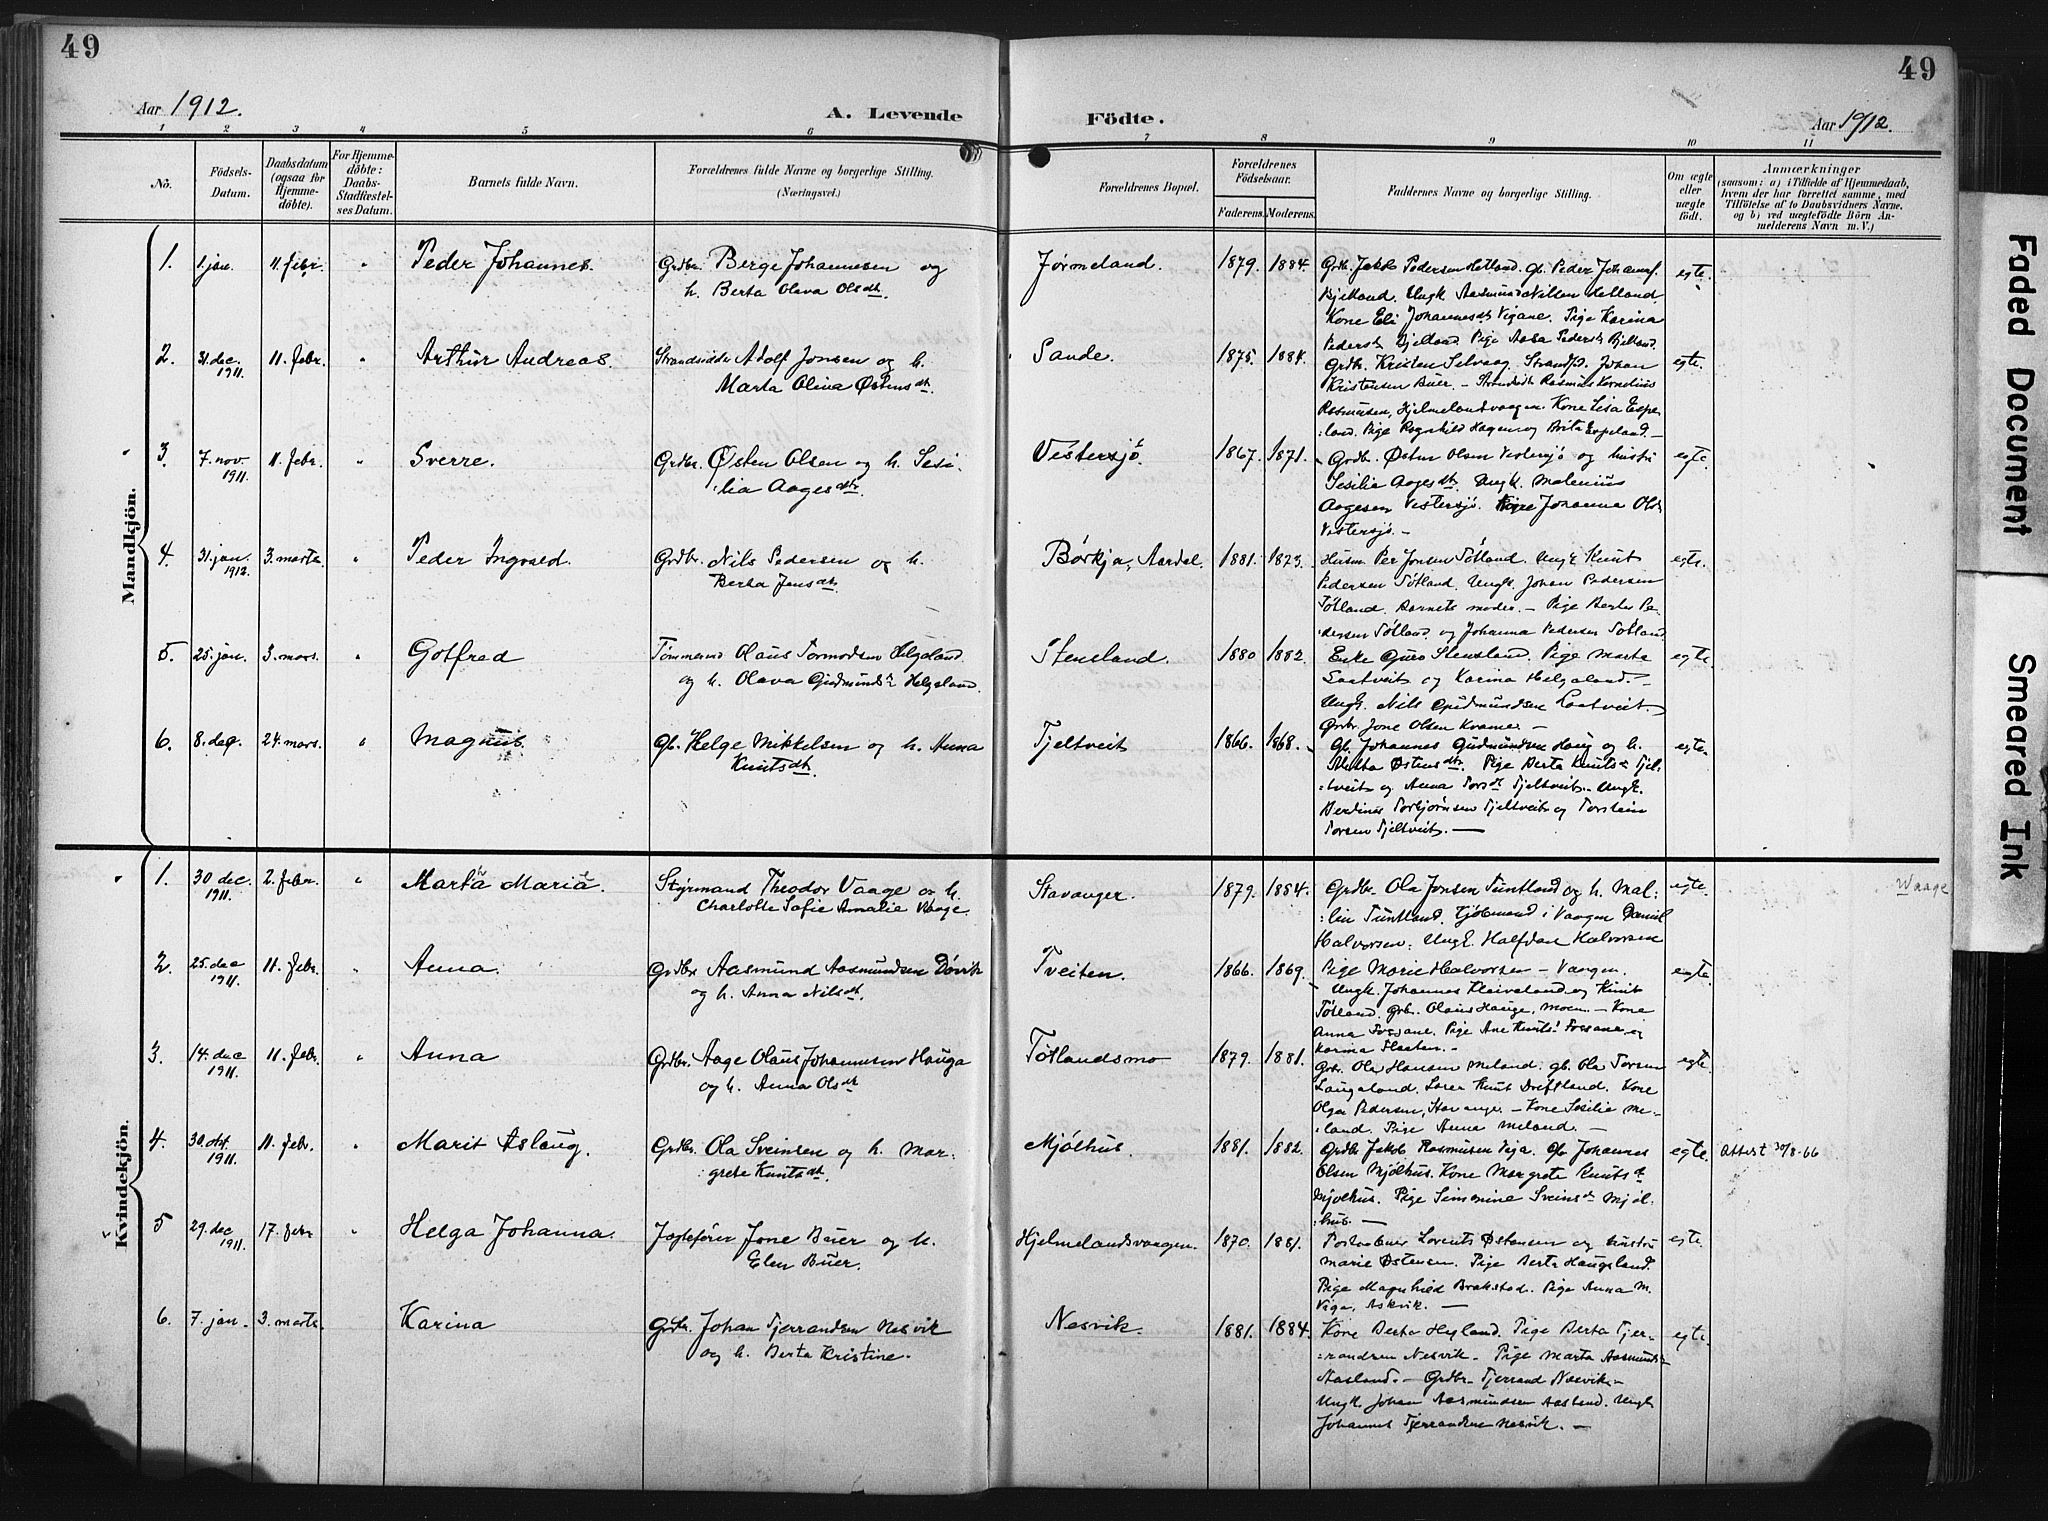 49
49
Aar 1912.
A. Levende
Födte.
Aar 1912.
1 2 3 4 5 6 7 8 9 10 11
No.
Födsels-Datum.
Daabsdatum (ogsaa for Hjemme-döbte).
For Hjemme-döbte: Daabs-Stadfæstel-ses Datum.
Barnets fulde Navn.
Forældrenes fulde Navne og borgerlige Stilling. (Næringsvei.)
Forældrenes Bopæl.
Forældrenes Födselsaar.
Faderens. Moderens.
Faddernes Navne og borgerlige Stilling.
Om ægte eller uægte födt.
Anmærkninger
(saasom: a) i Tilfælde af Hjemmedaab, hvem der har forrettet samme, med Tilföielse af to Daabsvidners Navne. og b) ved uægtefödte Börn An-melderens Navn m. V.)
Mandkjön.
1. 1 jan. 11. febr. " Peder Johannes. Grdbr. Berge Johannesen og
h. Berta Olava Olsdtr.
Jørmeland. 1879. 1884.
Grdbr. Jakob Pedersen Hetland. Gb. Peder Johannes.
Bjelland. Ungk Aasmund Nilsen Hetland.
Kone Eli Johannesdt Vigane. Pige Karina
Pedersdt Bjelland. Pige Aasa Pedersdt Bjelland.
egte.
2. 31. dec. 1911. 11. febr. " Arthur Andreas. Strandsidder Adolf Jonsen og h.
Marta Olina Østensdtr.
Sande. 1875. 1884.
Grdbr. Kristen Selvaag. Strandsid. Johan
Kristensen Buer. – Strandsidr Rasmus Kornelius
Rasmussen, Hjelmelandvaagen. Kone Lisa Espe
:land. Pige Ragnhild Hagen og Brita Espeland. –
egte.
3. 7. nov. 1911. 11. febr. " Sverre. Grdbr. Østen Olsen og h. Sesi
:lia Aagesdtr.
Vestersjø. 1867. 1871.
Grdbr. Østen Olsen Vestersjø og hustru
Sesilia Aagesdtr. Ungk. Malenius
Aagesen Vestersjø. Pige Johanna Olsdt
Vestersjø. –
egte.
4. 31. jan. 1912. 3. marts. " Peder Ingvald. Grdbr. Nils Pedersen og h.
Berta Jensdtr.
Børkja, Aardal. 1881. 1873.
Husm. Per Jonsen Tøtland. Ungk Knut
Pedersen Tøtland. Ungk. Johan Pedersen
Tøtland. Barnets moder. – Pige Berta Pe
:dersen Tøtland og Johanna Pedersen Tøtland.
egte.
5. 25. jan. 3. mars. " Gotfred Tømmermd Olaus Tormodsen Helgeland.
og h. Olava Gudmundsdt Helgeland.
Stensland. 1880 1882.
Enke Guro Stensland. Pige Marta
Laatveit og Karina Helgaland. –
Ungk. Nils Gudmundsen Laatveit.
Grdbr Jone Olsen Kvame. –
egte.
6. 8. dec. 24. mars. " Magnus. Gb. Helge Mikkelsen og h. Anna
Knutsdtr.
Tjeltveit 1866. 1868.
Gb. Johannes Gudmundsen Haug og h.
Malta Østensdtr. Pige Berta Knutsdt Tjel-
:tveit og Anna Torsdt Tjeltveit. – Ungk.
Berdines Torbjørnsen Tjeltveit og Torstein
Torsen Tjeltveit. —
egte.
Kvindekjön.
1. 30 dec. 1911. 2. febr. " Marta Maria. Styrmand Theodor Vaage og h.
Charlotte Sofie Amalie Vaage.
Stavanger. 1879. 1884.
Grdbr. Ola Jonsen Tuntland og h. Mal:
:lin Tuntland. Kjøbmand i Vaagen Daniel
Halvorsen. Ungk. Halfdan Halvorsen
Pige Marie Halvorsen – Vaagen.
egte.
Waage
2. 25. dec 1911. 11. febr. " Anna. Grdbr Aasmund Aasmundsen Døvik
og h. Anna Nilsdt.
Tveiten. 1866. 1869.
Ungk. Johannes Kleiveland og Knut
Tøtland. Grbr. Olaus Hauge, Moen. – Kone
Anna Fossane. Pige Ane Knuts. Fossane og
Karina Flaaten. –
egte.
3. 14. dec 1911. 11. febr. " Anna Grdbr. Aage Olaus Johannesen Hauga
og h. Anna Olsdt
Tøtlandsmo 1879. 1881.
Grdbr. Ola Hansen Meland. Gb. Ola Torsen
Laugaland. Lærer Knut Driftland. Kone
Olga Pedersen, Stavanger. – Kone Sesilia Me-
:land. Pige Anna Meland. –
egte.
4. 30. okt 1911. 11. febr. " Marit Aslaug. Grdbr. Ola Sveinsen og h. Mar:
:grete Knutsdt.
Mjølhus. 1881. 1882.
Grdbr Jakob Rasmusen Veja. Gb. Johannes
Olsen Mjølhus. Kone Margrete Knutsdt
Mjølhus. Pige Simmine Sveinsdt Mjøl-
:hus. —
egte.
Attest 30/8-66
5 29. dec 1911. 17. febr " Helga Johanna. Jagtefører Jone Buer og h.
Elen Buer.
Hjelmelandsvaagen. 1870. 1881.
Postaabner Lorents Østensen og hustru
Marie Østensen. Pige Berta Haugsland.
Pige Magnhild Brakstad. Pige Anna M.
Viga, Askvik. —
egte.
6. 7. jan. 3. marts. Karina Grdbr. Johan Tjerrandsen Nesvik
og h. Berta Kristine.
Nesvik. 1881. 1884.
Kone Berta Hyland. Pige Berta Tjer-
:randsen Nesvik. Pige Marta Aasmunds:
Aasland. – Grdbr. Tjerrand Nesvik. –
Ungk. Johan Aasmundsen Aasland. Ungk
Johannes Tjerrandsen Nesvik. –
egte.
Faded Document
Smeared Ink